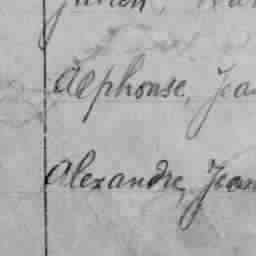 Alphonse, Jea
Alexandre, Jean